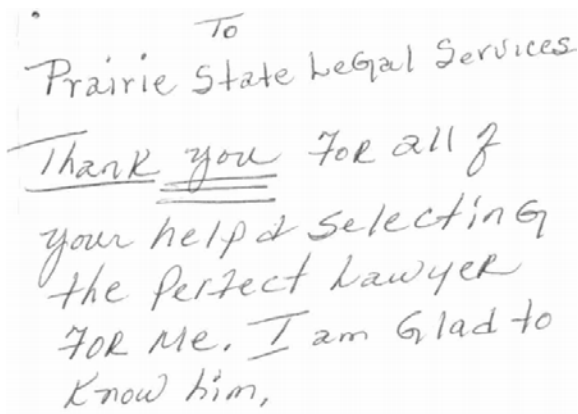 To
Prairie State Legal Services
Thank you FOR all of
your help & selecting
the Perfect Lawyer
FOR Me. I am Glad to
Know him,